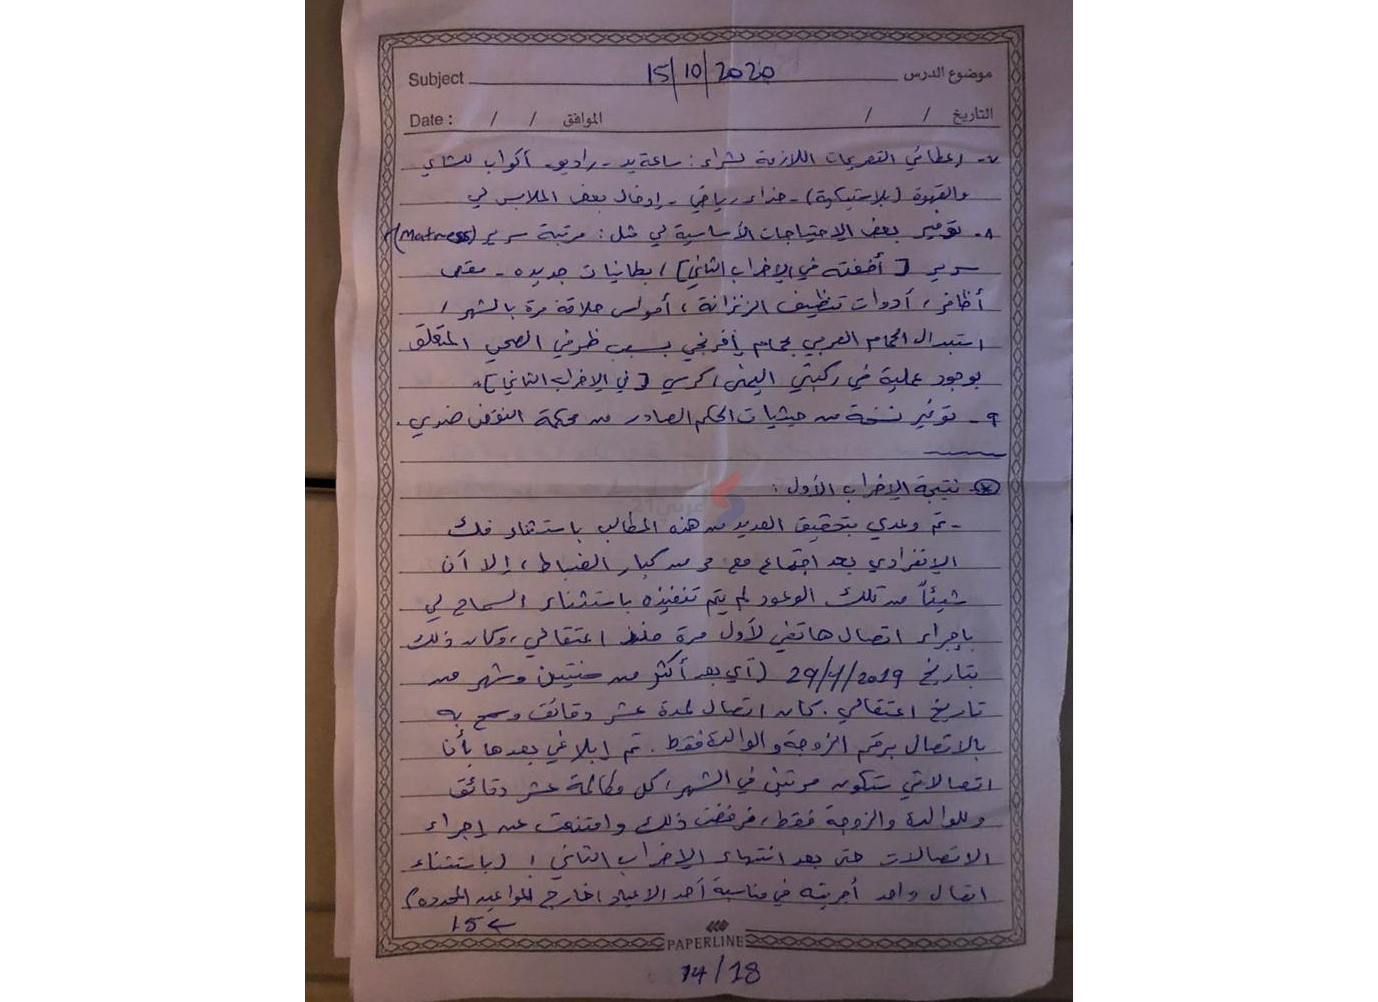 Subject 15/10/2020 موضوع الدرس
Date : / / الموافق / / التاريخ
٧- إعطائي التصريحات اللازمة لشراء : ساعة يد - راديو - أكواب للشاي
والقهوة (بلاستيكية) - حذاء رياضي - إدخال بعض الملابس لي
٨- توفير بعض الاحتياجات الأساسية لي مثل : مرتبة سرير (Matress)
سرير [أضفته في الإضراب الثاني] / بطانيات جديده - مقص
أظافر ، أدوات تنظيف الزنزانة ، أمواس حلاقة مرة بالشهر ،
استبدال الحمام العربي بحمام إفرنجي بسبب ظرفي الصحي المتعلق
بوجود عملية في ركبتي اليمنى ، كرسي [في الإضراب الثاني] .
٩- توفير نسخة من حيثيات الحكم الصادر من محكمة النقض ضدي .
* نتيجة الإضراب الأول :
عربي21
- تم وعدي بتحقيق العديد من هذه المطالب باستثناء فك
الإنفرادي بعد اجتماع مع من كبار الضباط ، إلا أن
شيئاً من تلك الوعود لم يتم تنفيذه باستثناء السماح لي
بإجراء اتصال هاتفي لأول مرة منذ اعتقالي ، وكان ذلك
بتاريخ 29/4/2019 (أي بعد أكثر من سنتين وشهر من
تاريخ اعتقالي . كان اتصال لمدة عشر دقائق وسمح به
بالاتصال برقم الزوجة والوالدة فقط . تم إبلاغي بعدها بأن
اتصالاتي ستكون مرتين في الشهر ، كل مكالمة عشر دقائق
وللوالدة والزوجة فقط ، فرفضت ذلك وامتنعت عن إجراء
الاتصالات حتى بعد انتهاء الإضراب الثاني ! (باستثناء
اتصال واحد أجريته في مناسبة أحد الأعياد خارج المواعيد المحدده)
15 ←
PAPERLINE
14/18